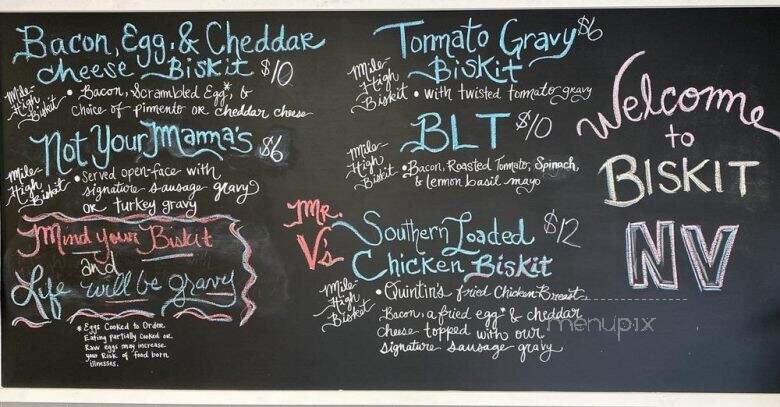 Bacon, Egg, & Cheddar
cheese Biskit $10
Mile-
High
Biskit
• Bacon, Scrambled Egg*, &
choice of pimento or cheddar cheese
Not Your Mamma's $6
Mile-
High
Biskit
• Served open-face with
signature sausage gravy
or turkey gravy
Mind your Biskit
and
Life will be gravy
* Eggs Cooked to Order
Eating partially cooked or
Raw eggs may increase
your Risk of food born
illnesses.
Tomato Gravy $6
Biskit
Mile-
High
Biskit
• with twisted tomato gravy
BLT $10
Mile-
High
Biskit
• Bacon, Roasted Tomato, Spinach,
& lemon basil mayo
Mr.
V's
Southern Loaded $12
Chicken Biskit
Mile-
High
Biskit
• Quintin's fried Chicken Breast
Bacon, a fried egg* & cheddar
cheese topped with our
signature sausage gravy
Welcome
to
BISKIT
NV
menupix